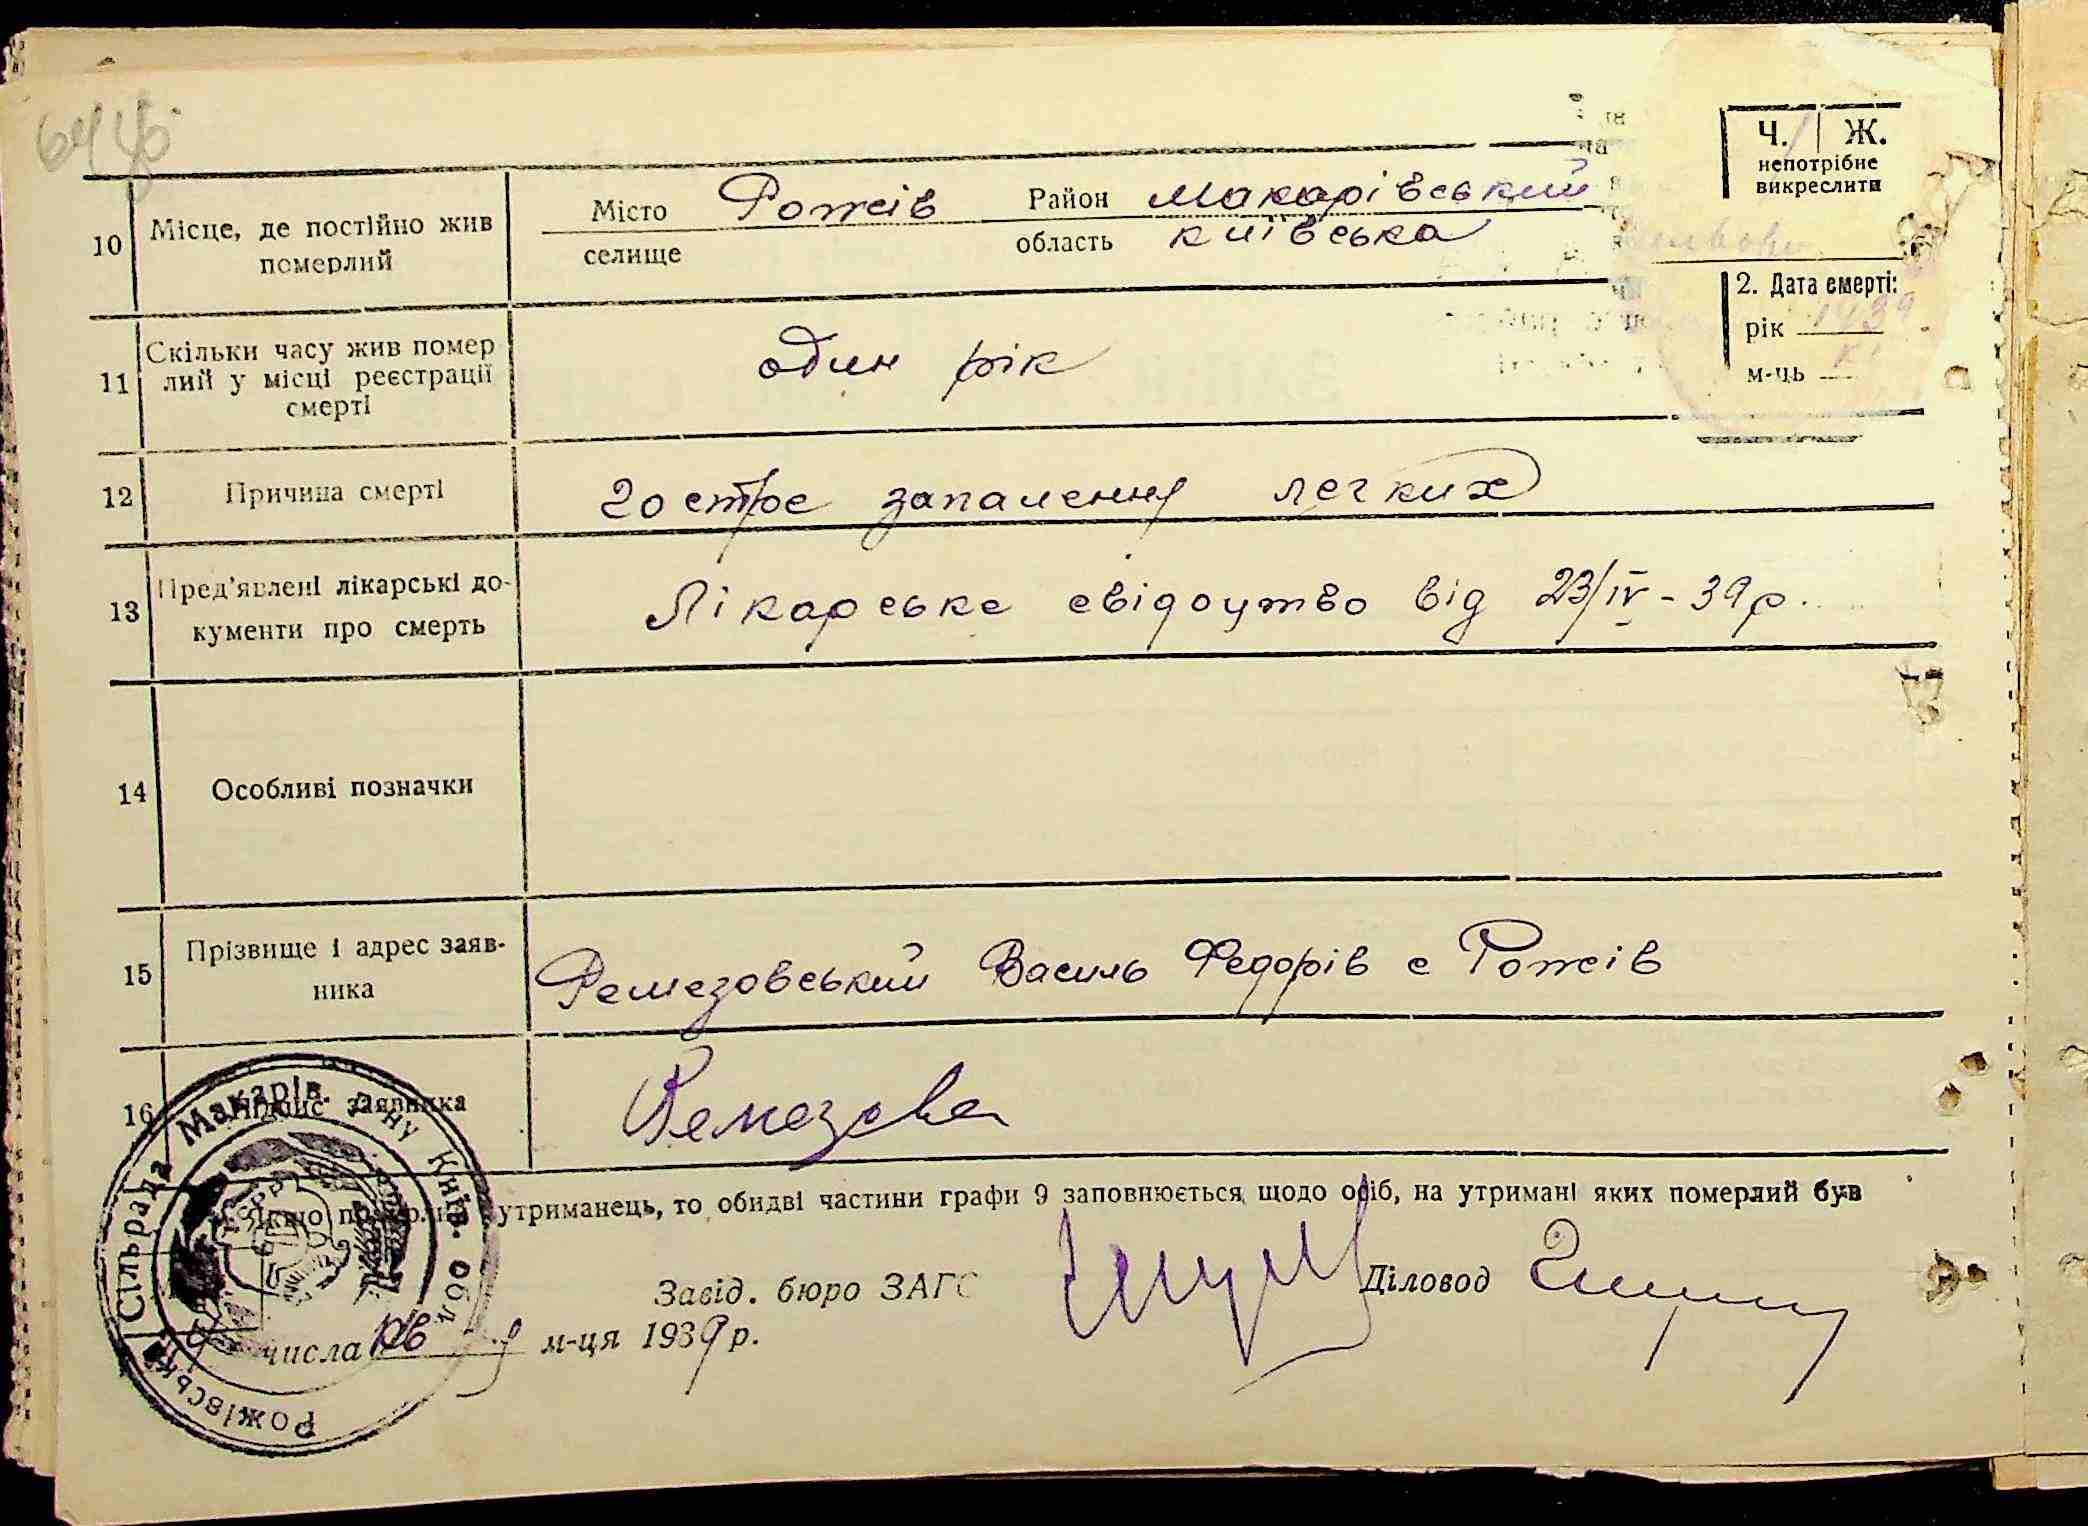 Ч. Ж.
непотрібне
викреслити
10 Місце, де постійно жив
померлий
Місто Рожів Район Макарівський
селище область київська
2. Дата смерті:
рік 1939
м-ць
11 Скільки часу жив помер
лий у місці реєстрації
смерті
один рік
12 Причина смерті гостре запалення легких
13 Пред'явлені лікарські до-
кументи про смерть
Лікарське свідоцтво від 23/IV - 39 р.
14 Особливі позначки
15 Прізвище і адрес заяв-
ника
Ремезовський Василь Федорів с Рожів
16 Підпис заявника Ремезовс
Якщо померлий утриманець, то обидві частини графи 9 заповнюється щодо осіб, на утримані яких померлий був
Завід. бюро ЗАГС Діловод
числа м-ця 1939 р.
Рожівська Сільрада Макарів. р-ну Київ. обл.